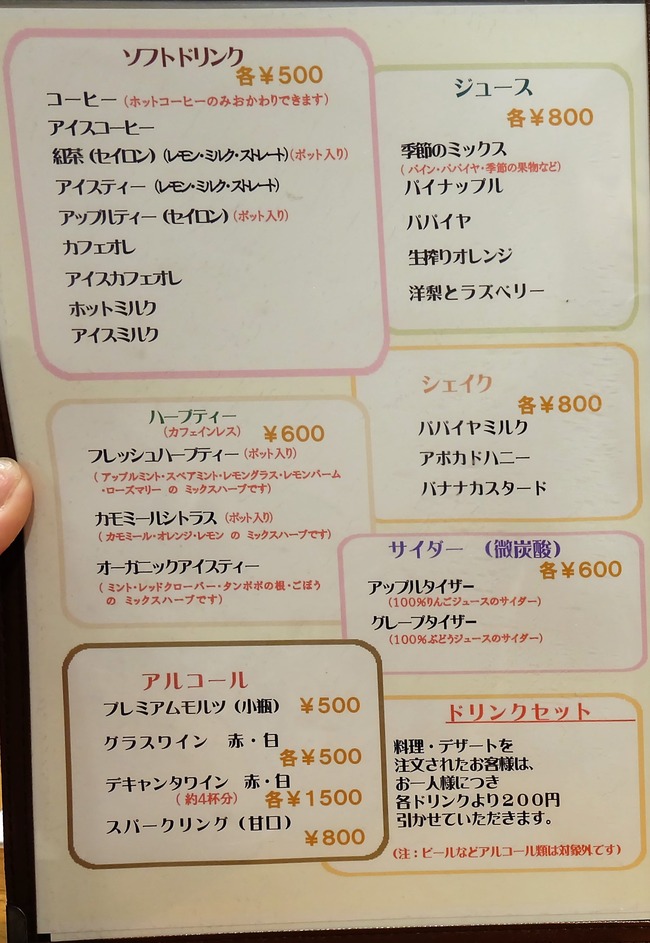 ソフトドリンク
各￥500
コーヒー（ホットコーヒーのみおかわりできます）
アイスコーヒー
紅茶（セイロン）（レモン・ミルク・ストレート）（ポット入り）
アイスティー（レモン・ミルク・ストレート）
アップルティー（セイロン）（ポット入り）
カフェオレ
アイスカフェオレ
ホットミルク
アイスミルク
ジュース
各￥800
季節のミックス
（パイン・パパイヤ・季節の果物など）
パイナップル
パパイヤ
生搾りオレンジ
洋梨とラズベリー
シェイク
各￥800
パパイヤミルク
アボカドハニー
バナナカスタード
ハーブティー
（カフェインレス）　￥600
フレッシュハーブティー（ポット入り）
（アップルミント・スペアミント・レモングラス・レモンバーム
・ローズマリー の ミックスハーブです）
カモミールシトラス（ポット入り）
（カモミール・オレンジ・レモン の ミックスハーブです）
オーガニックアイスティー
（ミント・レッドクローバー・タンポポの根・ごぼう
の ミックスハーブです）
サイダー　（微炭酸）
各￥600
アップルタイザー
（100％りんごジュースのサイダー）
グレープタイザー
（100％ぶどうジュースのサイダー）
アルコール
プレミアムモルツ（小瓶）　￥500
グラスワイン　赤・白
各￥500
デキャンタワイン　赤・白
（約4杯分）　各￥1500
スパークリング（甘口）
￥800
ドリンクセット
料理・デザートを
注文されたお客様は、
お一人様につき
各ドリンクより２００円
引かせていただきます。
（注：ビールなどアルコール類は対象外です）